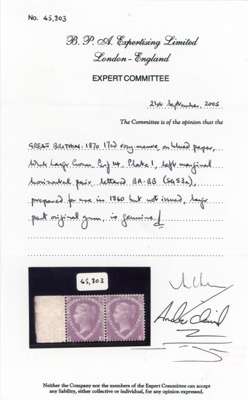 No. 45,303
B. P. A. Expertising Limited
London - England
EXPERT COMMITTEE
21st September, 2005
The Committee is of the opinion that the
GREAT BRITAIN: 1870 1½d rosy-mauve on blued paper,
Wmk Large Crown Perf 14. Plate 1, left marginal
horizontal pair lettered BA-BB (SG53a),
prepared for use in 1860 but not issued, large
part original gum, is genuine.
45,303
Neither the Company nor the members of the Expert Committee can accept
any liability, either collective or individual, for any opinion expressed.